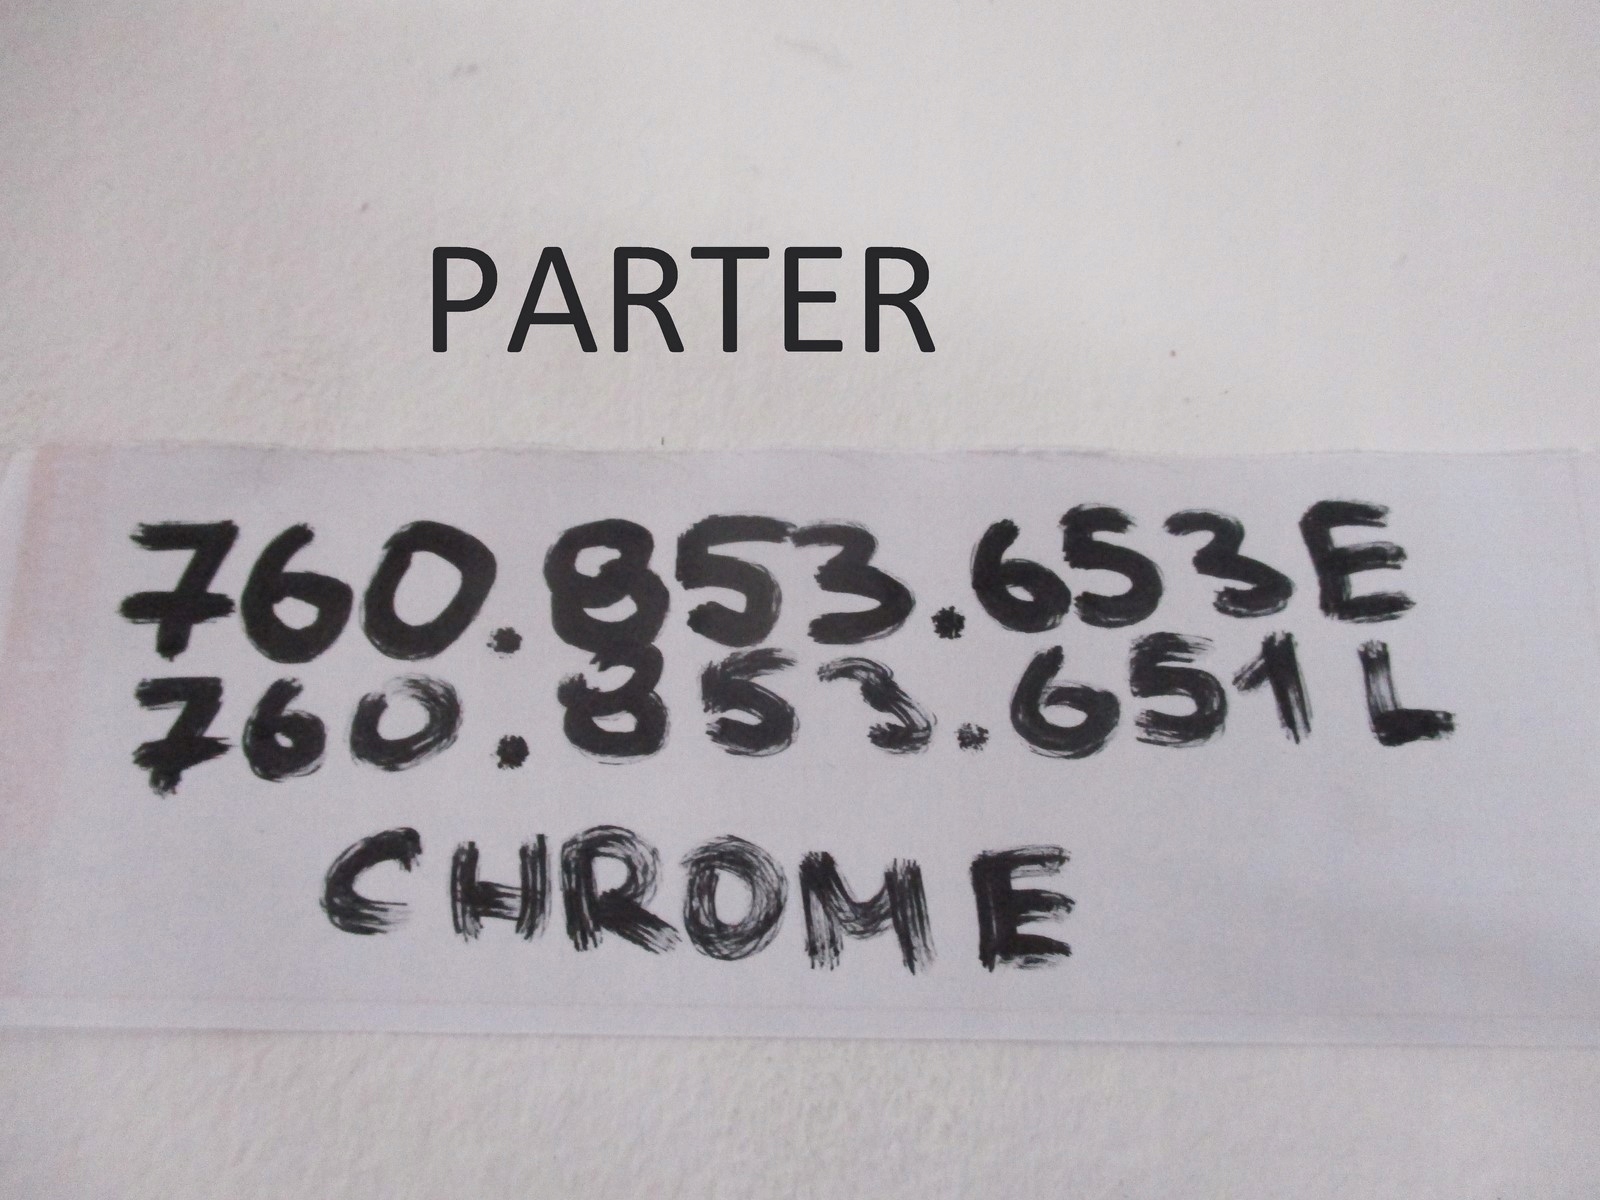 PARTER
760.853.653E
760.853.651L
CHROME